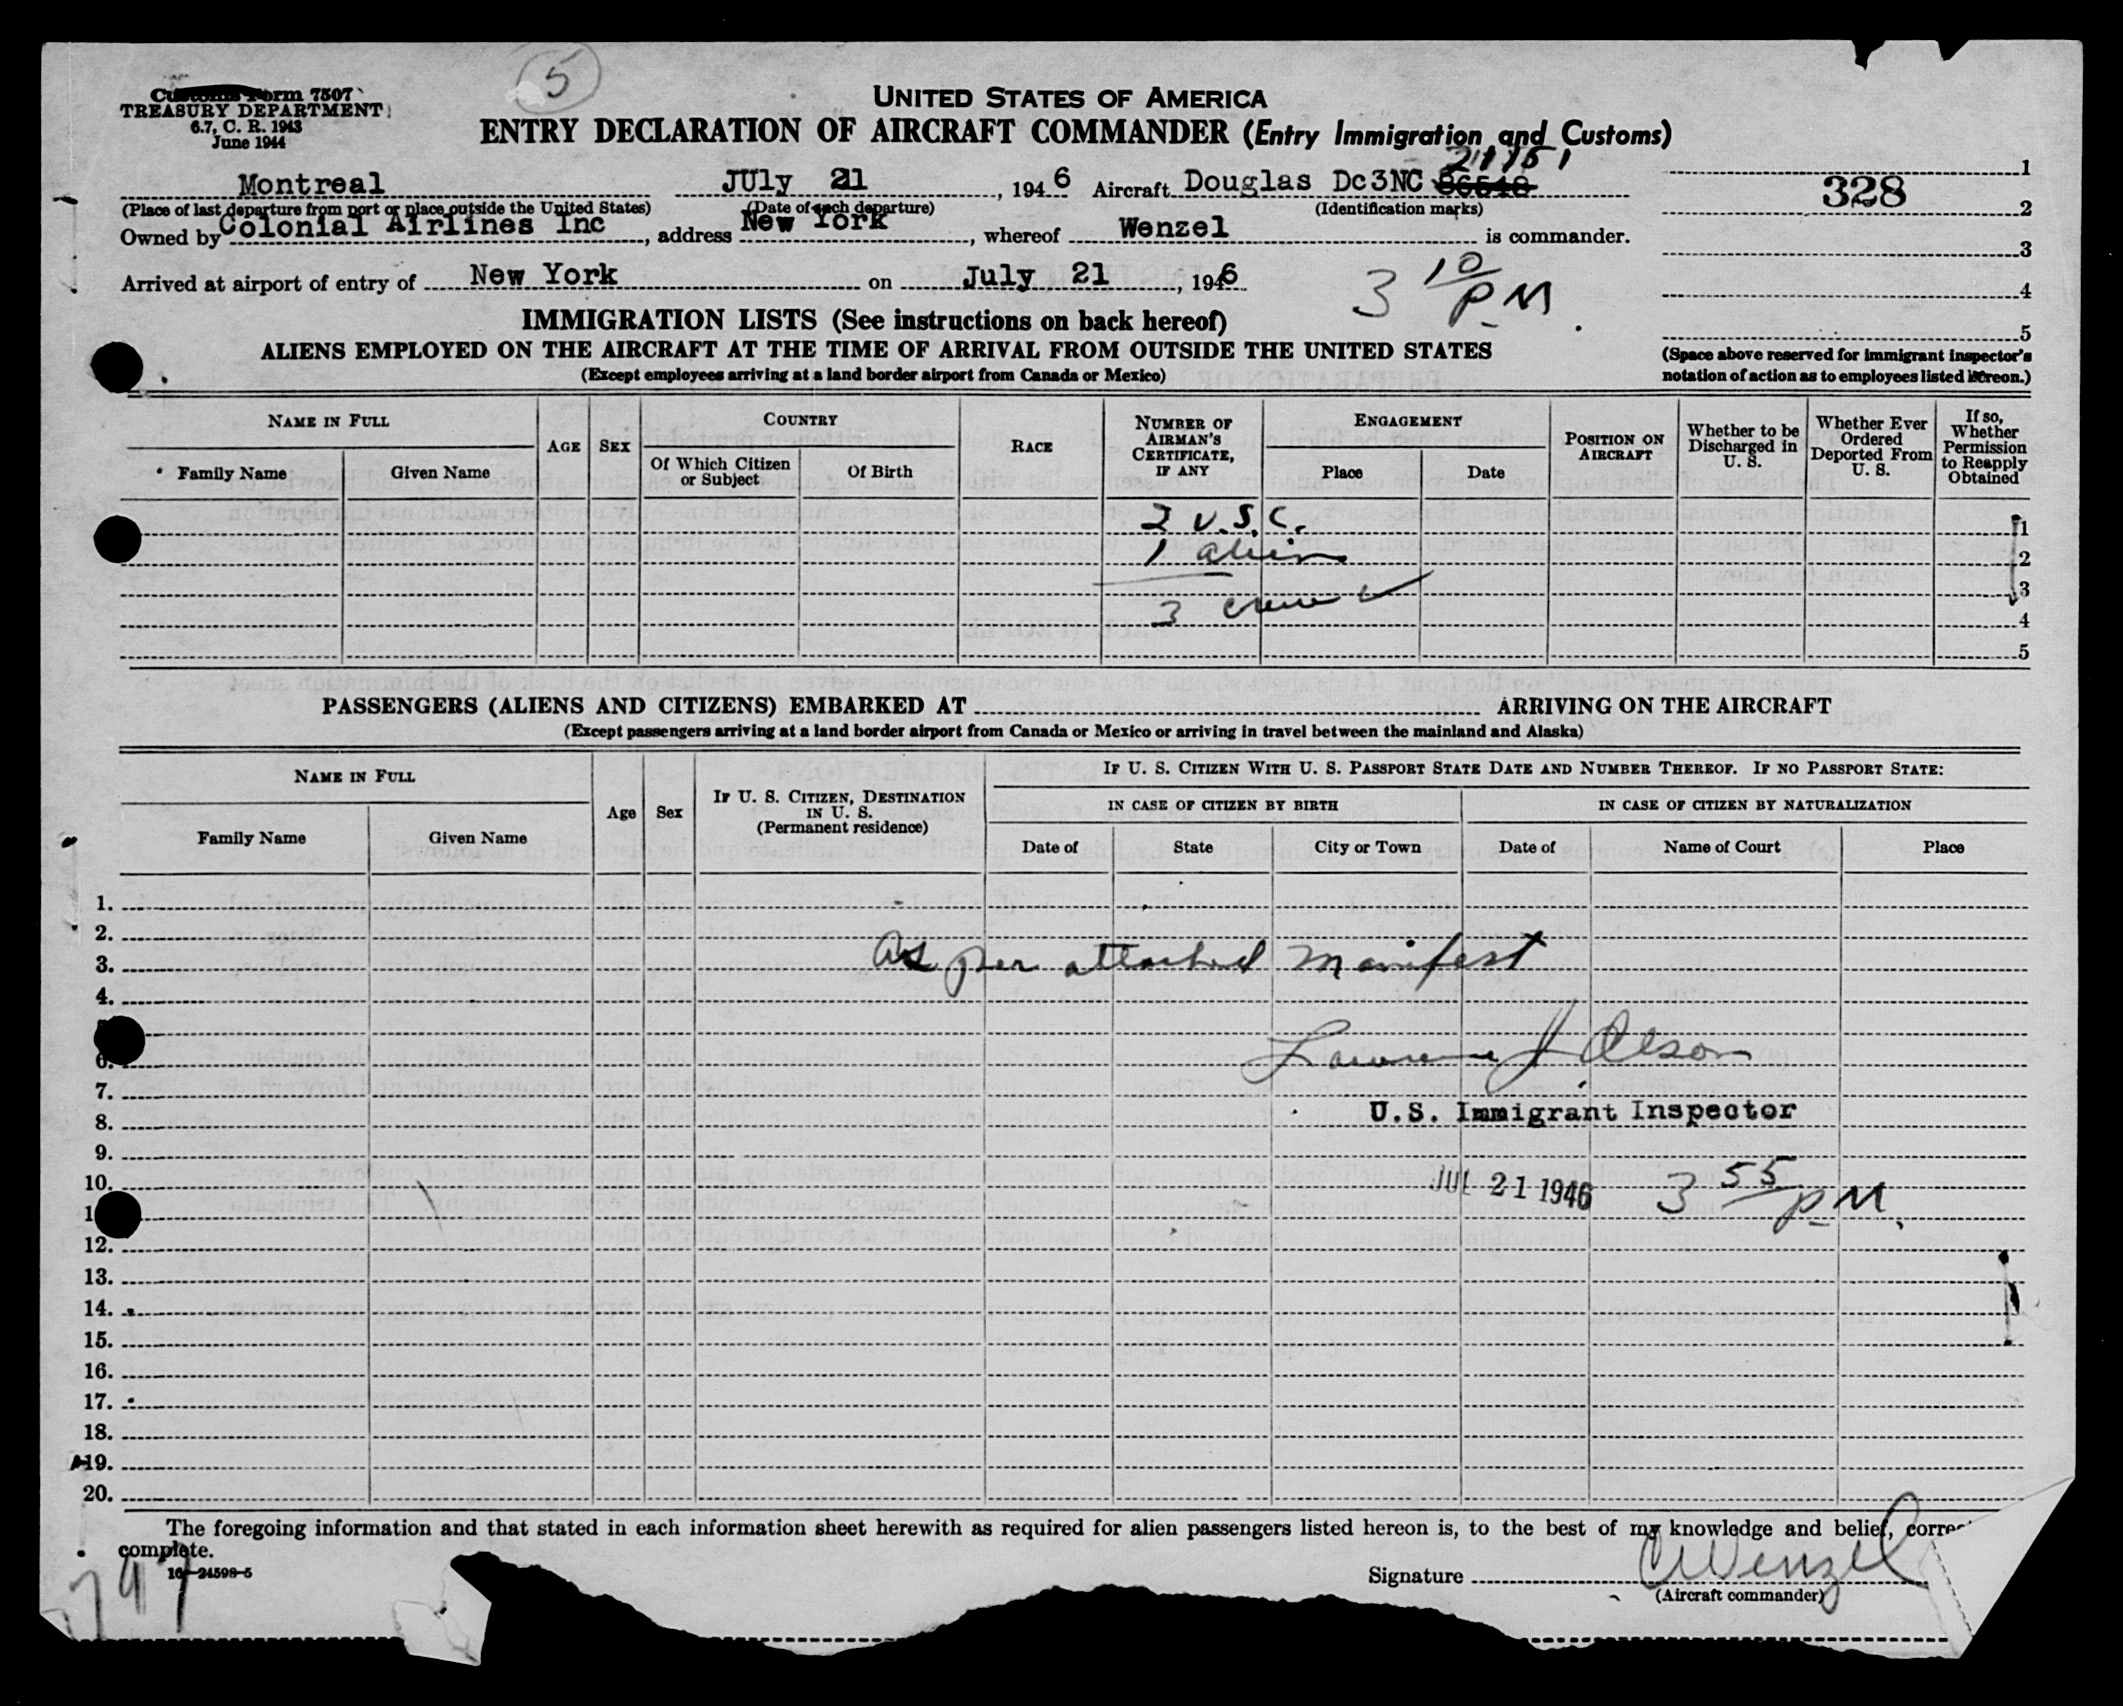 5
Customs Form 7507
TREASURY DEPARTMENT
6.7, C. R. 1943
June 1944
UNITED STATES OF AMERICA
ENTRY DECLARATION OF AIRCRAFT COMMANDER (Entry Immigration and Customs)
21751
Montreal JUly 21, 1946 Aircraft Douglas Dc3NC 86548
(Place of last departure from port or place outside the United States) (Date of each departure) (Identification marks)
Owned by Colonial Airlines Inc, address New York, whereof Wenzel is commander.
Arrived at airport of entry of New York on July 21, 1946
3 10 PM
1
328
2
3
4
5
(Space above reserved for immigrant inspector's
notation of action as to employees listed hereon.)
IMMIGRATION LISTS (See instructions on back hereof)
ALIENS EMPLOYED ON THE AIRCRAFT AT THE TIME OF ARRIVAL FROM OUTSIDE THE UNITED STATES
(Except employees arriving at a land border airport from Canada or Mexico)
NAME IN FULL
Family Name Given Name
AGE SEX
COUNTRY
Of Which Citizen or Subject Of Birth
RACE
NUMBER OF AIRMAN'S CERTIFICATE, IF ANY
ENGAGEMENT
Place Date
POSITION ON AIRCRAFT
Whether to be Discharged in U. S.
Whether Ever Ordered Deported From U. S.
If so, Whether Permission to Reapply Obtained
2 U.S.C. 1
1 alien 2
3
3 crew 4
5
PASSENGERS (ALIENS AND CITIZENS) EMBARKED AT ARRIVING ON THE AIRCRAFT
(Except passengers arriving at a land border airport from Canada or Mexico or arriving in travel between the mainland and Alaska)
NAME IN FULL
Family Name Given Name
Age Sex
IF U. S. CITIZEN, DESTINATION IN U. S. (Permanent residence)
IF U. S. CITIZEN WITH U. S. PASSPORT STATE DATE AND NUMBER THEREOF. IF NO PASSPORT STATE:
IN CASE OF CITIZEN BY BIRTH IN CASE OF CITIZEN BY NATURALIZATION
Date of State City or Town Date of Name of Court Place
1.
2.
3. As per attached Manifest
4.
6. Lawrence J. Olson
7.
8. U.S. Immigrant Inspector
9.
10. JUL 21 1946 3 55 PM.
12.
13.
14.
15.
16.
17.
18.
19.
20.
The foregoing information and that stated in each information sheet herewith as required for alien passengers listed hereon is, to the best of my knowledge and belief, correct
complete.
16—24598-5
Signature C Wenzel
(Aircraft commander)